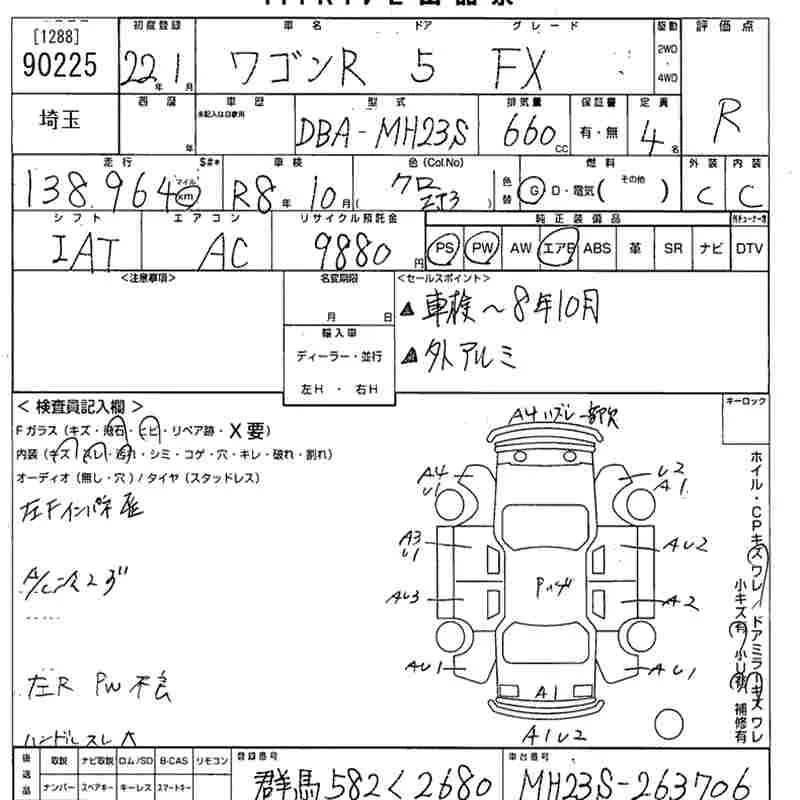 [1288]
90225
埼玉
初度登録
22年 1月
車名 ドア グレード
ワゴンR 5 FX
駆動
2WD
4WD
評価点
R
西歴
年
車歴
未記入は自家用
型式
DBA-MH23S
排気量
660cc
保証書
有・無
定員
4名
走行 $#*
138,964 マイル km
車検
R8年 10月
色(Col.No)
(クロ ZJ3)
色替
燃料
G D・電気( その他 )
外装 内装
C C
シフト
IAT
エアコン
AC
リサイクル預託金
9880円
純正装備品
PS PW AW エアB ABS 革 SR ナビ DTV
<注意事項>
名変期限
月 日
輸入車
ディーラー・並行
左H ・ 右H
<セールスポイント>
▲車検〜8年10月
▲外アルミ
<検査員記入欄>
キーロック
Fガラス(キズ・飛石・ヒビ・リペア跡・X要)
内装(キズ・スレ・汚れ・シミ・コゲ・穴・キレ・破れ・割れ)
オーディオ(無し・穴)/タイヤ(スタッドレス)
左R PW不良
ハンドルスレ大
A4
U1
U2
A1
A3
U1
AU2
AU3
A2
AU1
AU1
A1
A1U2
ホイル・CPキズワレ/ドアミラーキズワレ
小キズ有 小U有 補修有
後送品
取説 ナビ取説 ロム/SD B-CAS リモコン
ナンバー スペアキー キーレス スマートキー
登録番号
群馬582く2680
車台番号
MH23S-263706